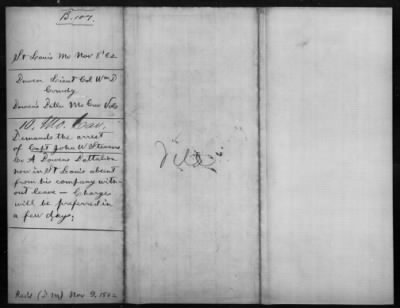 B. 107.
St Louis Mo Nov 8" 62
Bowen Lieut Col Wm D
Comdg
Bowen's Batln Mo Cav Vols
10. Mo. Cav.
Demands the arrest
of Capt John W Stevens
Co A Bowens Battalion
now in St Louis absent
from his company with-
out leave — Charges
will be preferred in
a few days;
File
Recd (D M) Nov 9, 1862